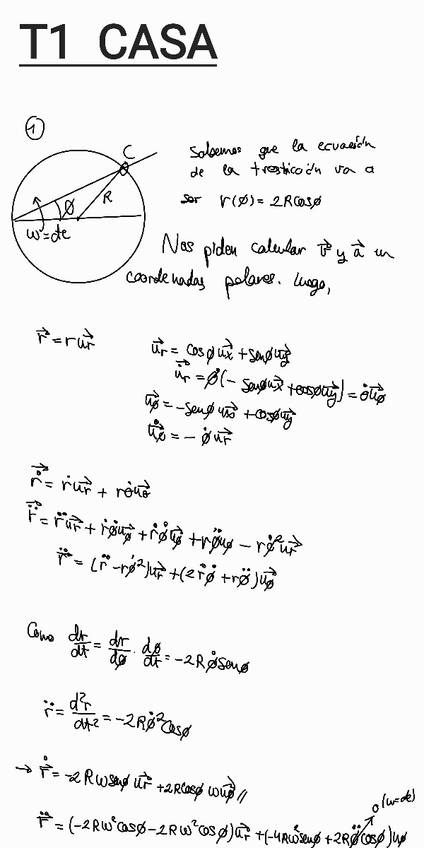 T1 CASA
①
C
Sabemos que la ecuación
de la trayectoria va a
ser r(φ) = 2Rcosφ
R
φ
ω=cte
Nos piden calcular v⃗ y a⃗ en
coordenadas polares. Luego,
r⃗ = r u⃗r
u⃗r = cosφ u⃗x + senφ u⃗y
u̇⃗r = φ̇(-senφ u⃗x + cosφ u⃗y) = φ̇ u⃗φ
u⃗φ = -senφ u⃗x + cosφ u⃗y
u̇⃗φ = -φ̇ u⃗r
ṙ⃗ = ṙ u⃗r + rφ̇ u⃗φ
r̈⃗ = r̈ u⃗r + ṙφ̇ u⃗φ + ṙφ̇ u⃗φ + rφ̈ u⃗φ - rφ̇² u⃗r
r̈⃗ = (r̈ - rφ̇²) u⃗r + (2ṙφ̇ + rφ̈) u⃗φ
Como dr/dt = dr/dφ · dφ/dt = -2Rφ̇ senφ
r̈ = d²r/dt² = -2Rφ̇² cosφ
→ ṙ⃗ = -2Rω senφ u⃗r + 2R cosφ ω u⃗φ //
0 (ω=cte)
r̈⃗ = (-2Rω² cosφ - 2Rω² cosφ) u⃗r + (-4Rω² senφ + 2Rφ̈ cosφ) u⃗φ